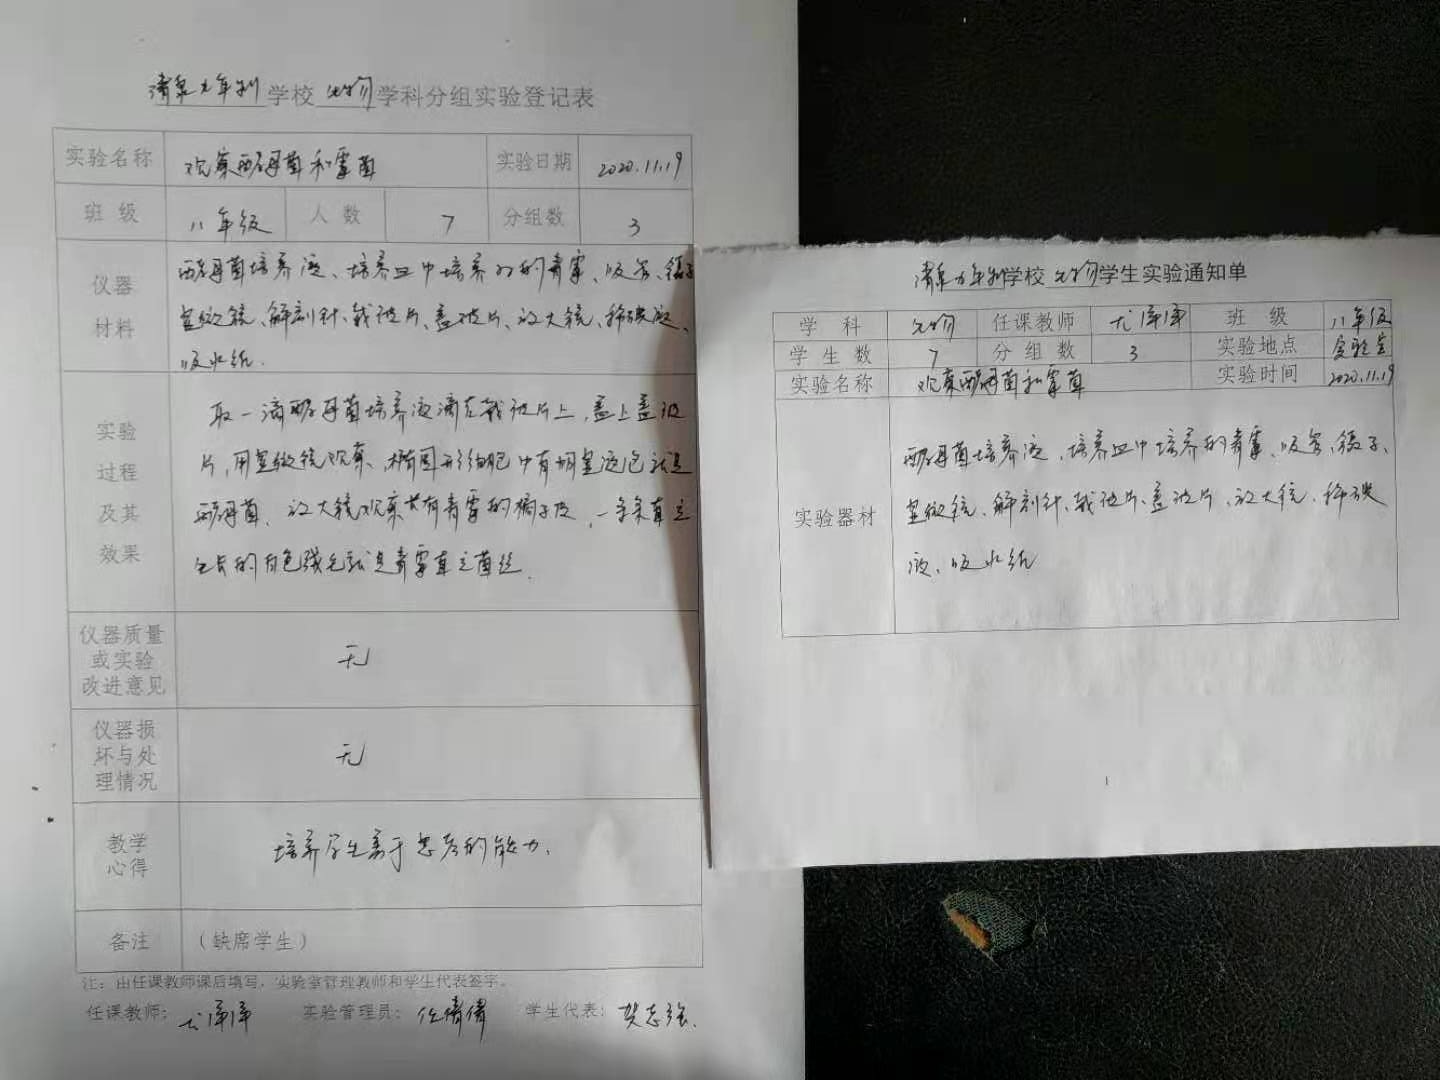 清泉九年制学校 生物 学科分组实验登记表
实验名称 观察酵母菌和霉菌 实验日期 2020.11.19
班级 八年级 人数 7 分组数 3
仪器材料
酵母菌培养液、培养皿中培养的青霉、吸管、镊子
显微镜、解剖针、载玻片、盖玻片、放大镜、稀碘液、
吸水纸.
实验过程及其效果
取一滴酵母菌培养液滴在载玻片上,盖上盖玻
片,用显微镜观察、椭圆形细胞中有明显液泡就是
酵母菌、放大镜观察长有青霉的橘子皮,一条条直立
生长的白色绒毛就是青霉直立菌丝.
仪器质量或实验改进意见 无
仪器损坏与处理情况 无
教学心得 培养学生善于思考的能力.
备注 (缺席学生)
注:由任课教师课后填写,实验室管理教师和学生代表签字。
任课教师: 实验管理员:任倩倩 学生代表:贺志强.
清泉九年制学校 生物 学生实验通知单
学科 生物 任课教师 班级 八年级
学生数 7 分组数 3 实验地点 实验室
实验名称 观察酵母菌和霉菌 实验时间 2020.11.19
实验器材
酵母菌培养液、培养皿中培养的青霉、吸管、镊子、
显微镜、解剖针、载玻片、盖玻片、放大镜、稀碘
液、吸水纸